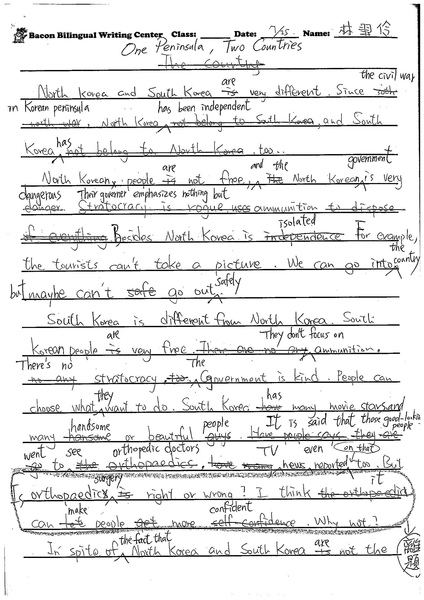 Bacon Bilingual Writing Center Class: Date: 7/15 Name: 林
One Peninsula, Two Countries
The country
are the civil war
North Korea and South Korea is very different. Since
in Korean peninsula has been independent
north war, North Korea not belong to South Korea, and South
has
Korea not belong to North Korea too.
are and the government
North Korean people is not free, The North Korean is very
dangerous Their governer emphasizes nothing but
danger. Stratocracy is rogue, uses ammunition to dispose
isolated
of everything Besides North Korea is independence For example,
the
the tourists can't take a picture. We can go into country
but maybe can't safe go out safely
South Korea is different from North Korea. South
are They don't focus on
Korean people is very free. There are no any ammunition.
There's no The
no any stratocracy, too. Government is kind. People can
they has
choose what want to do. South Korea have many movie stars and
handsome people It is said that those good-lookin people
many handsome or beautiful guys. Have people says they are
went see orthopedic doctors TV even on that
go to the orthopaedics, news reported too. But
surgery it
is orthopaedics is right or wrong? I think the orthopaedics
make confident
can let people get more self confidence. Why not?
the fact that are 離題
In spite of North Korea and South Korea is not the